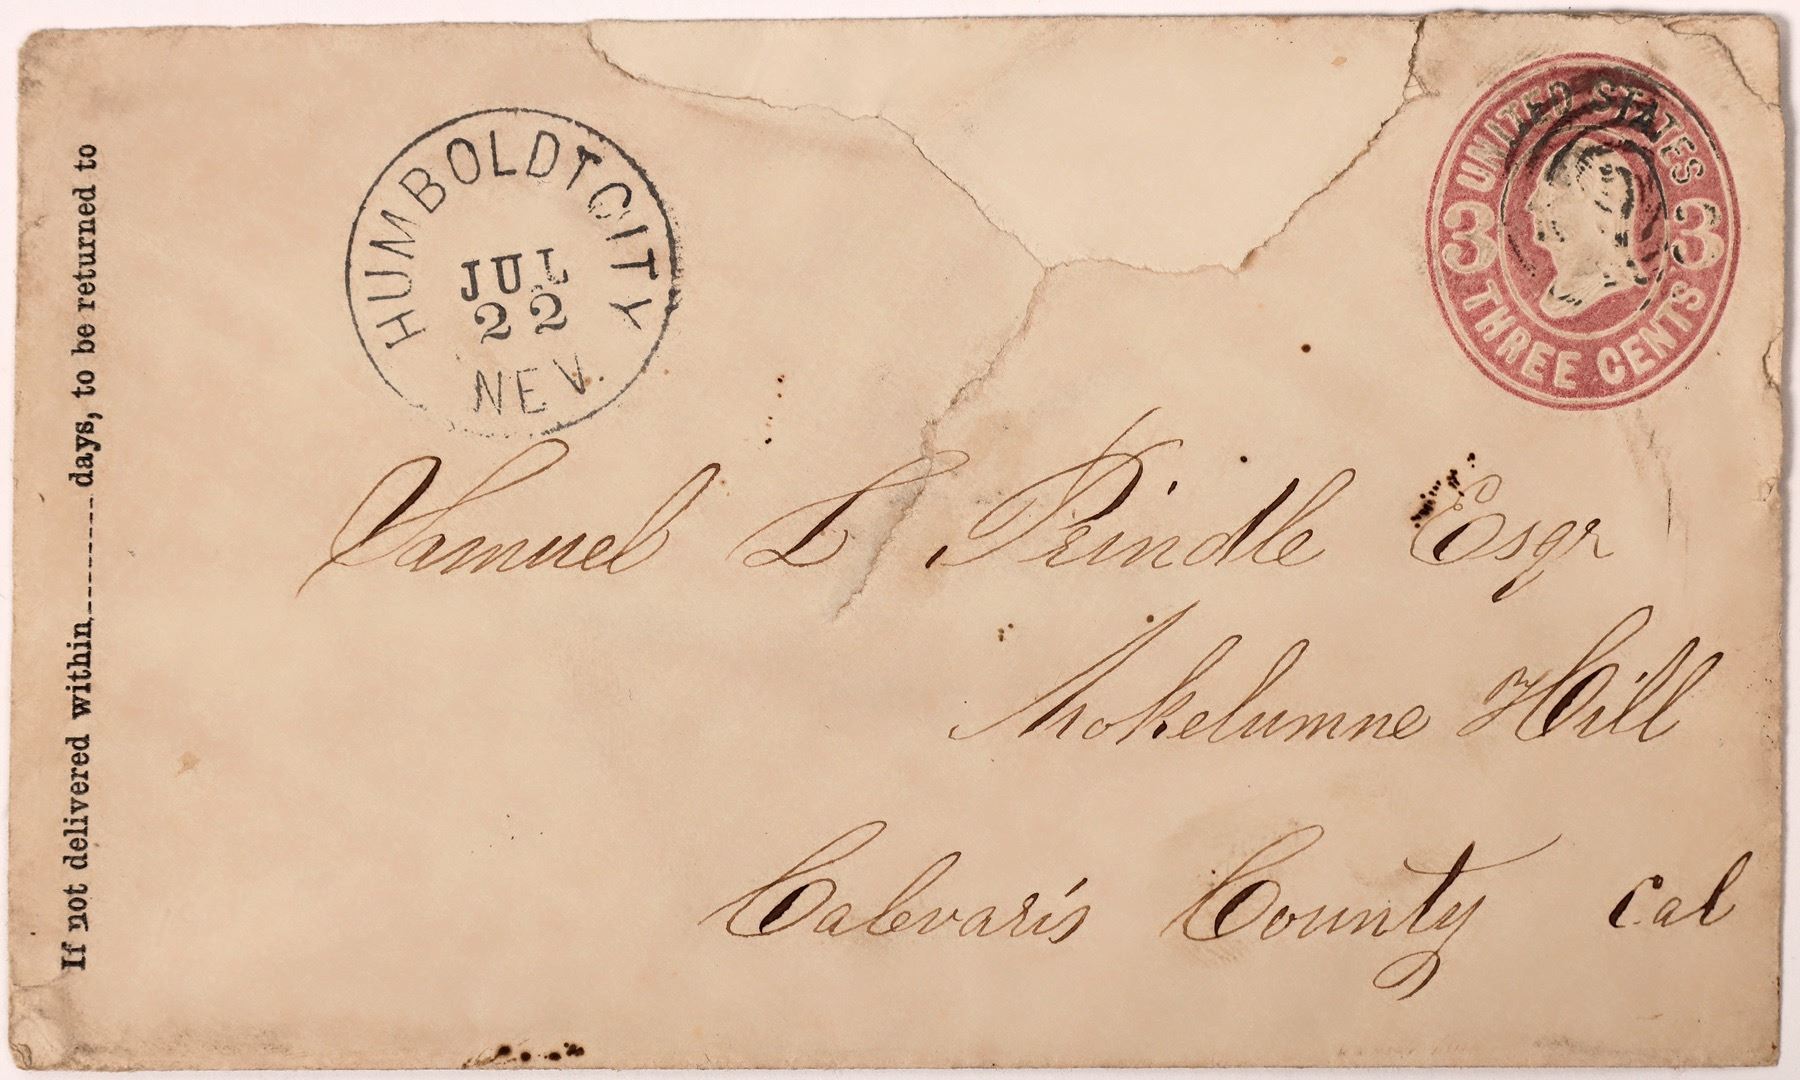 HUMBOLDT CITY
JUL
22
NEV.
UNITED STATES
3 3
THREE CENTS
If not delivered within.......... days, to be returned to
Samuel L Prindle Esqr
Mokelumne Hill
Calevaris County Cal